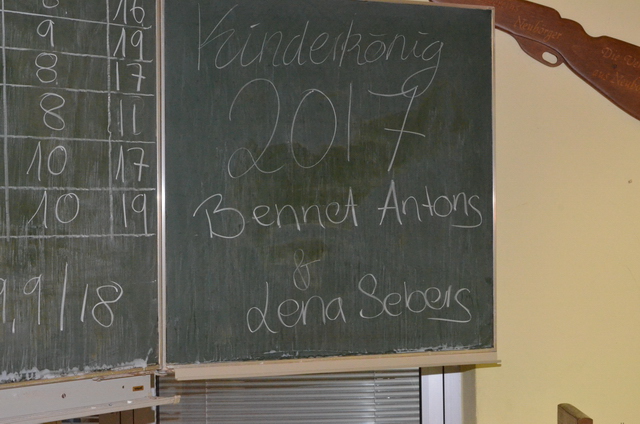 16
9 19
8 17
8 11
10 17
10 19
9,9/18
Kinderkönig
2017
Bennet Antons
&
Lena Sebers